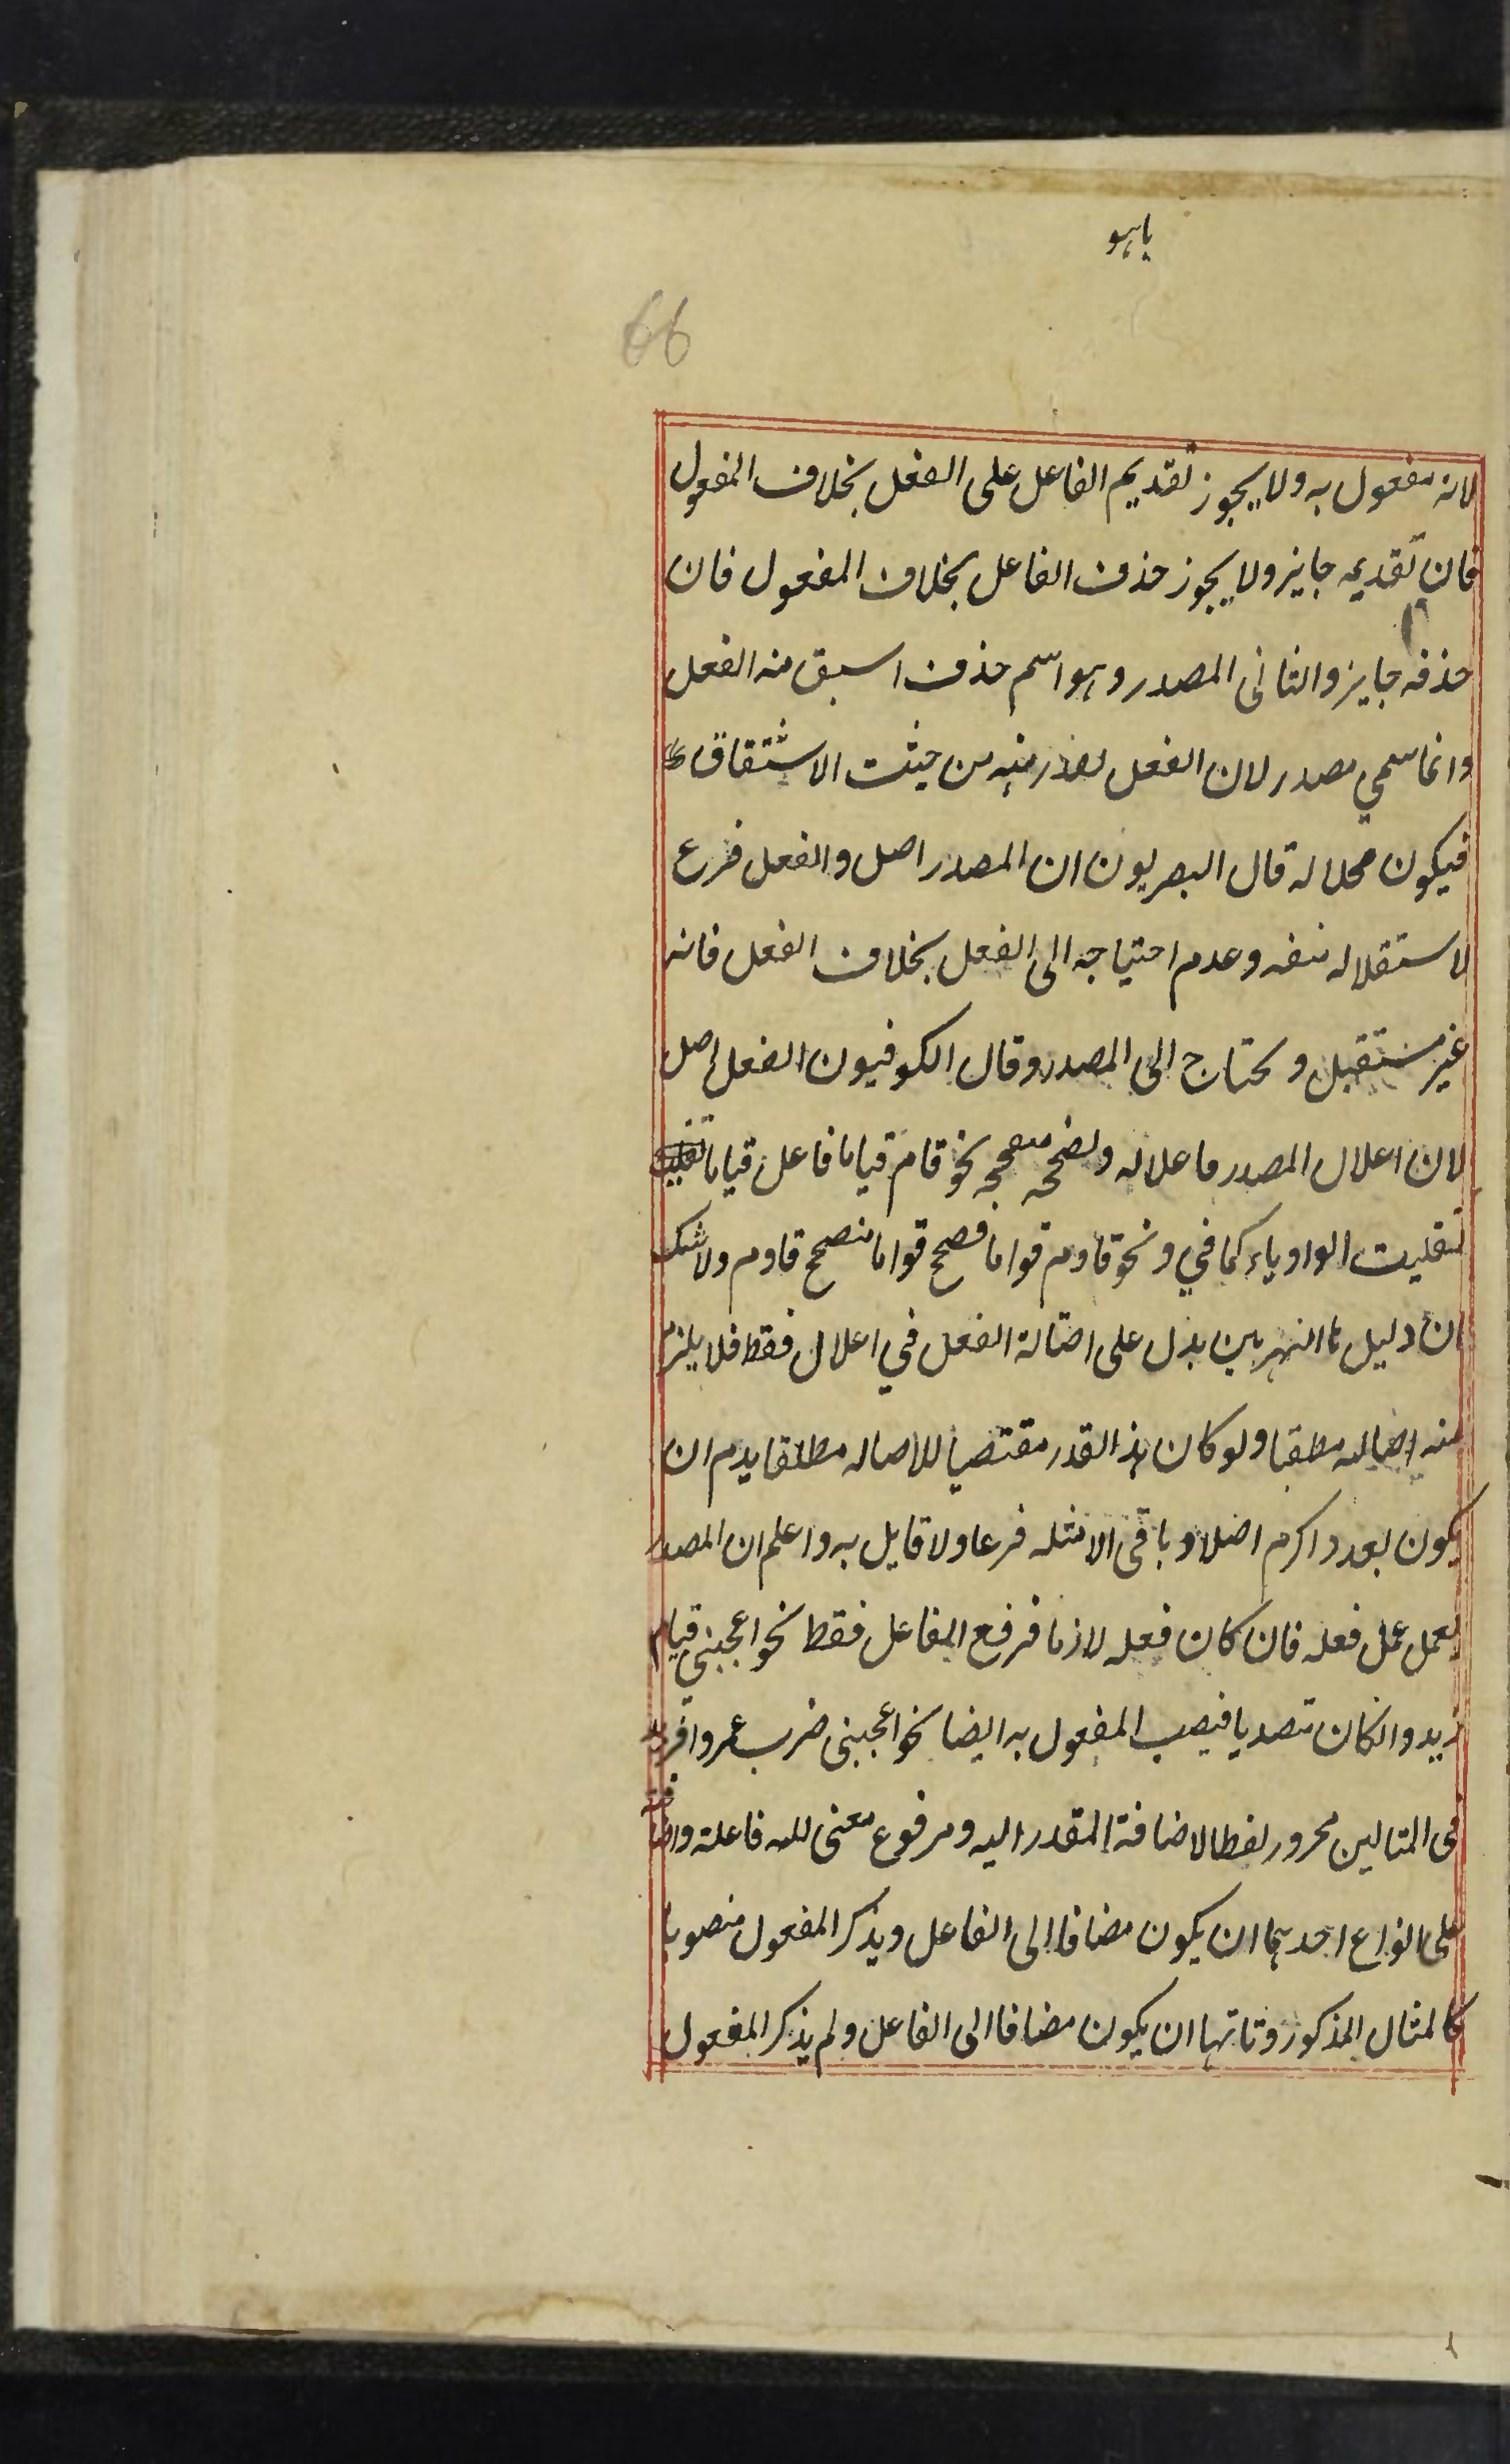 ياهو
66
لانه مفعول به ولا يجوز تقديم الفاعل على الفعل بخلاف المفعول
فان تقديمه جايز ولا يجوز حذف الفاعل بخلاف المفعول فان
حذفه جايز والثانى المصدر وهو اسم حذف اسبق منه الفعل
وانما سمي مصدر لان الفعل منه من حيث الاشتقاق
فيكون محلا له قال البصريون ان المصدر اصل والفعل فرع
لاستقلاله بنفسه وعدم احتياجه الى الفعل بخلاف الفعل فانه
غير مستقبل ومحتاج الى المصدر وقال الكوفيون الفعل اصل
لان اعلال المصدر ماعلاله نحو قام قياما فاعل قياما
الواو ياء كما في ونحو قاوم قواما فصح قواما قاوم ولاشك
ان دليل بدل على اصالة الفعل في اعلال فقط فلا يلزم
منه اصاله ولو كان هذ القدر مقتضيا للاصاله مطلقا يدم ان
يكون اكرم اصلا وباقى الامثله فرعا ولا قايل به واعلم ان المصدر
يعمل عمل فعله فان كان فعله لازما فرفع الفاعل فقط نحو اعجبنى قيام
زيد وانكان فينصب المفعول به ايضا نحو اعجبنى ضرب عمروا
فى المثالين مجرور لفظا لاضافة المقدر اليه ومرفوع معنى فاعلة
على انواع احدهما ان يكون مضافا الى الفاعل ويذكر المفعول منصوبا
كالمثال المذكور وثانيها ان يكون مضافا الى الفاعل ولم يذكر المفعول